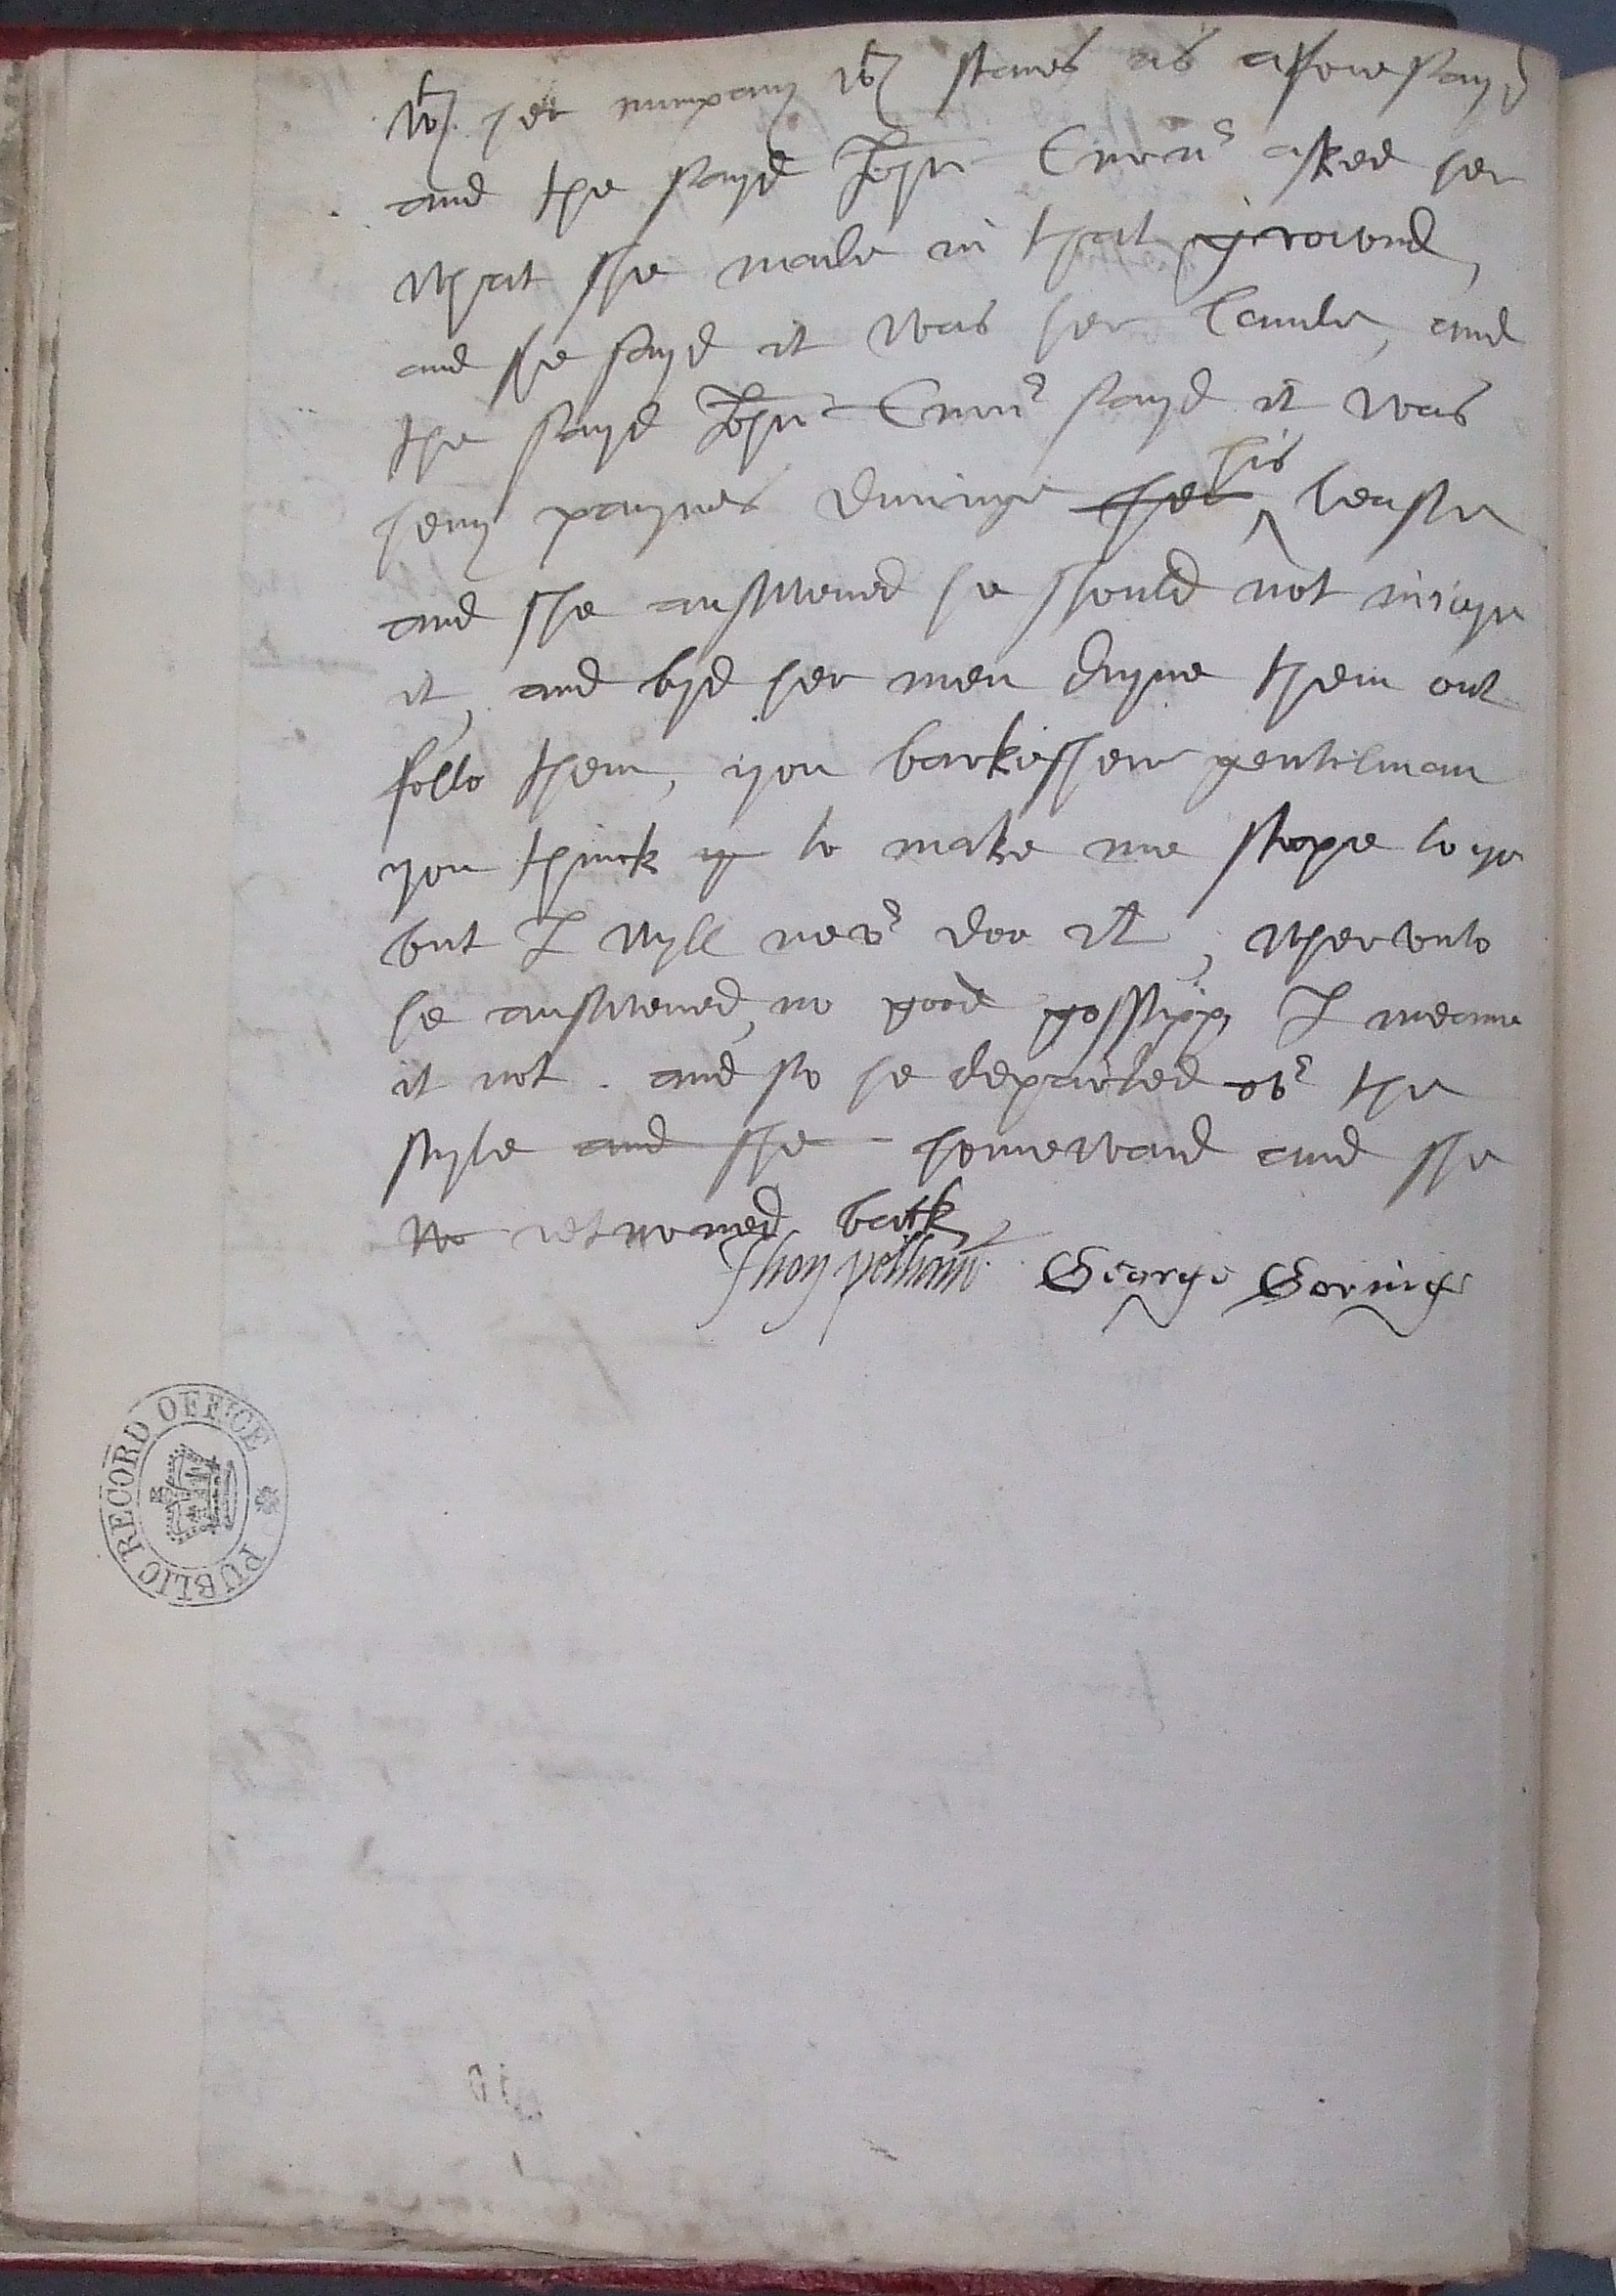 wth her cumpany wth staves as afforesayd
and the sayd John asked her
what she made in that grownd,
and she sayd it was her lande, and
the sayd John sayd it was
heny paynes duringe her his leasse
and she answered he should not inioye
it, and byd her men dryve them out
follo them, you barkessher gentilman
you thinck ye to make me stope to ye
but I wyll nevr doo it, wherunto
he answered, no good gossipp, I meane
it not. and so he departed ovr the
style and she homeward and she
we retorned back
Jhon pelham. George Goringe
PUBLIC RECORD OFFICE